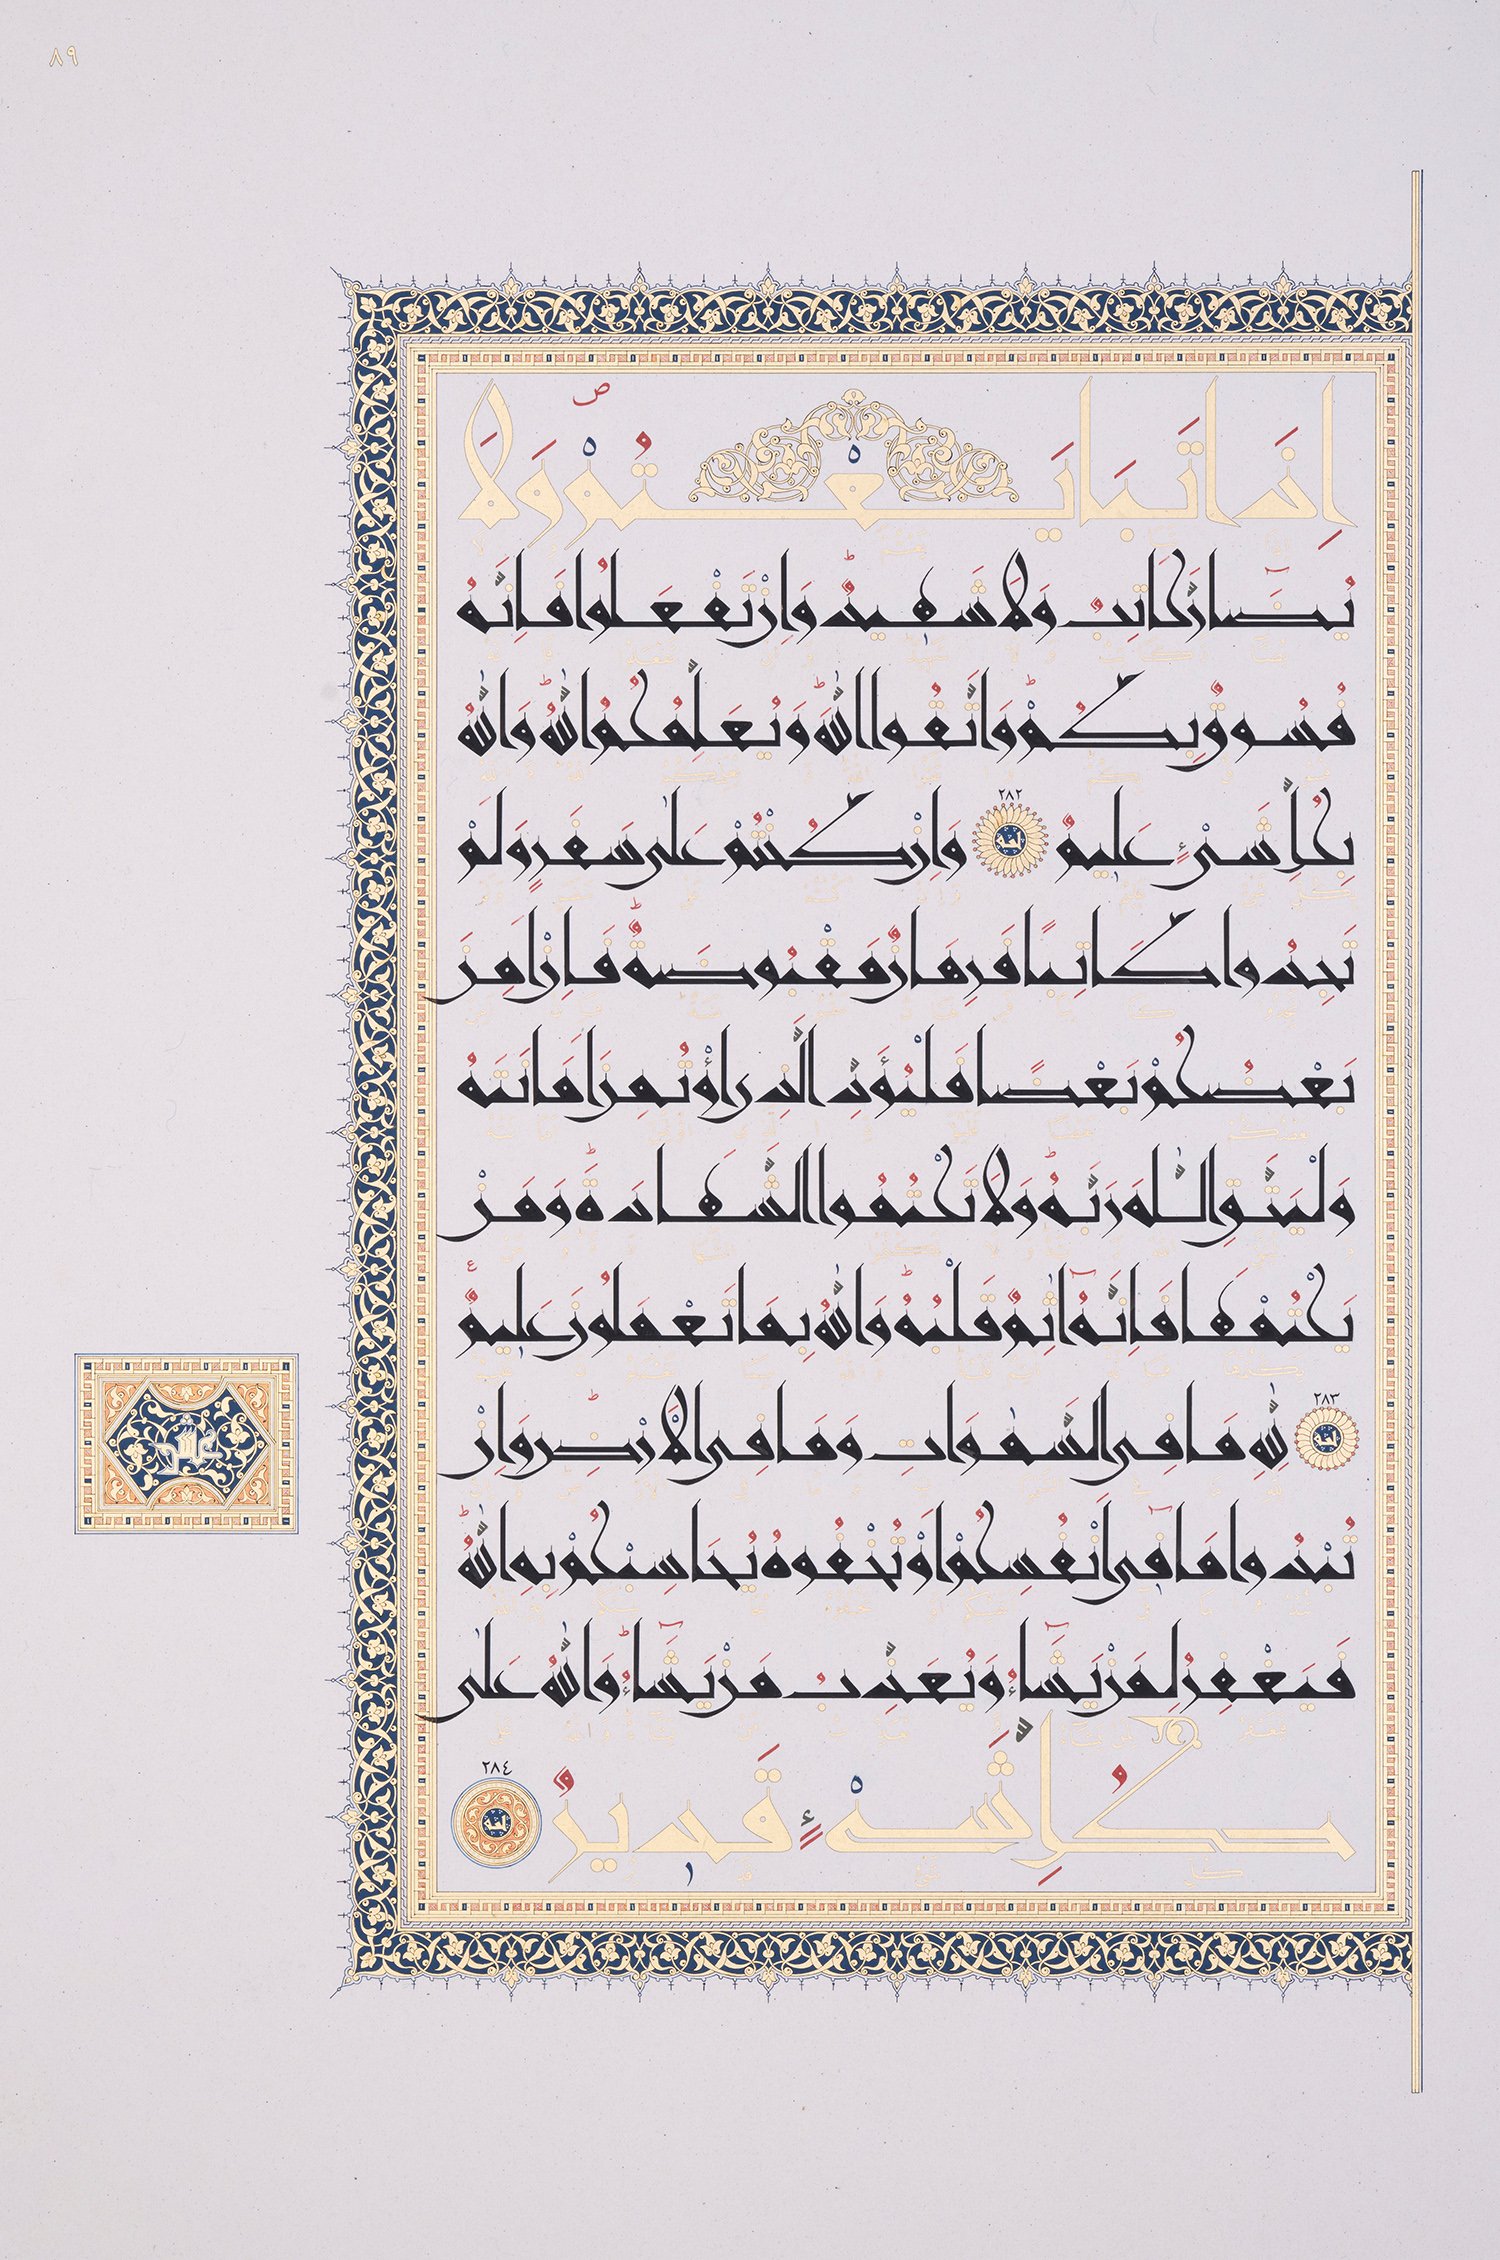 ٨٩
إِذَا تَبَايَعْتُمْ ۖ وَلَا
يُضَارَّ كَاتِبٌ وَلَا شَهِيدٌ ۚ وَإِنْ تَفْعَلُوا فَإِنَّهُ
فُسُوقٌ بِكُمْ ۗ وَاتَّقُوا اللَّهَ ۗ وَيُعَلِّمُكُمُ اللَّهُ ۗ وَاللَّهُ
بِكُلِّ شَيْءٍ عَلِيمٌ ٢٨٢ وَإِنْ كُنْتُمْ عَلَىٰ سَفَرٍ وَلَمْ
تَجِدُوا كَاتِبًا فَرِهَانٌ مَقْبُوضَةٌ ۖ فَإِنْ أَمِنَ
بَعْضُكُمْ بَعْضًا فَلْيُؤَدِّ الَّذِي اؤْتُمِنَ أَمَانَتَهُ
وَلْيَتَّقِ اللَّهَ رَبَّهُ ۗ وَلَا تَكْتُمُوا الشَّهَادَةَ ۚ وَمَنْ
يَكْتُمْهَا فَإِنَّهُ آثِمٌ قَلْبُهُ ۗ وَاللَّهُ بِمَا تَعْمَلُونَ عَلِيمٌ
٢٨٣ لِلَّهِ مَا فِي السَّمٰوَاتِ وَمَا فِي الْأَرْضِ ۗ وَإِنْ
تُبْدُوا مَا فِي أَنْفُسِكُمْ أَوْ تُخْفُوهُ يُحَاسِبْكُمْ بِهِ اللَّهُ ۖ
فَيَغْفِرُ لِمَنْ يَشَاءُ وَيُعَذِّبُ مَنْ يَشَاءُ ۗ وَاللَّهُ عَلَىٰ
كُلِّ شَيْءٍ قَدِيرٌ ٢٨٤